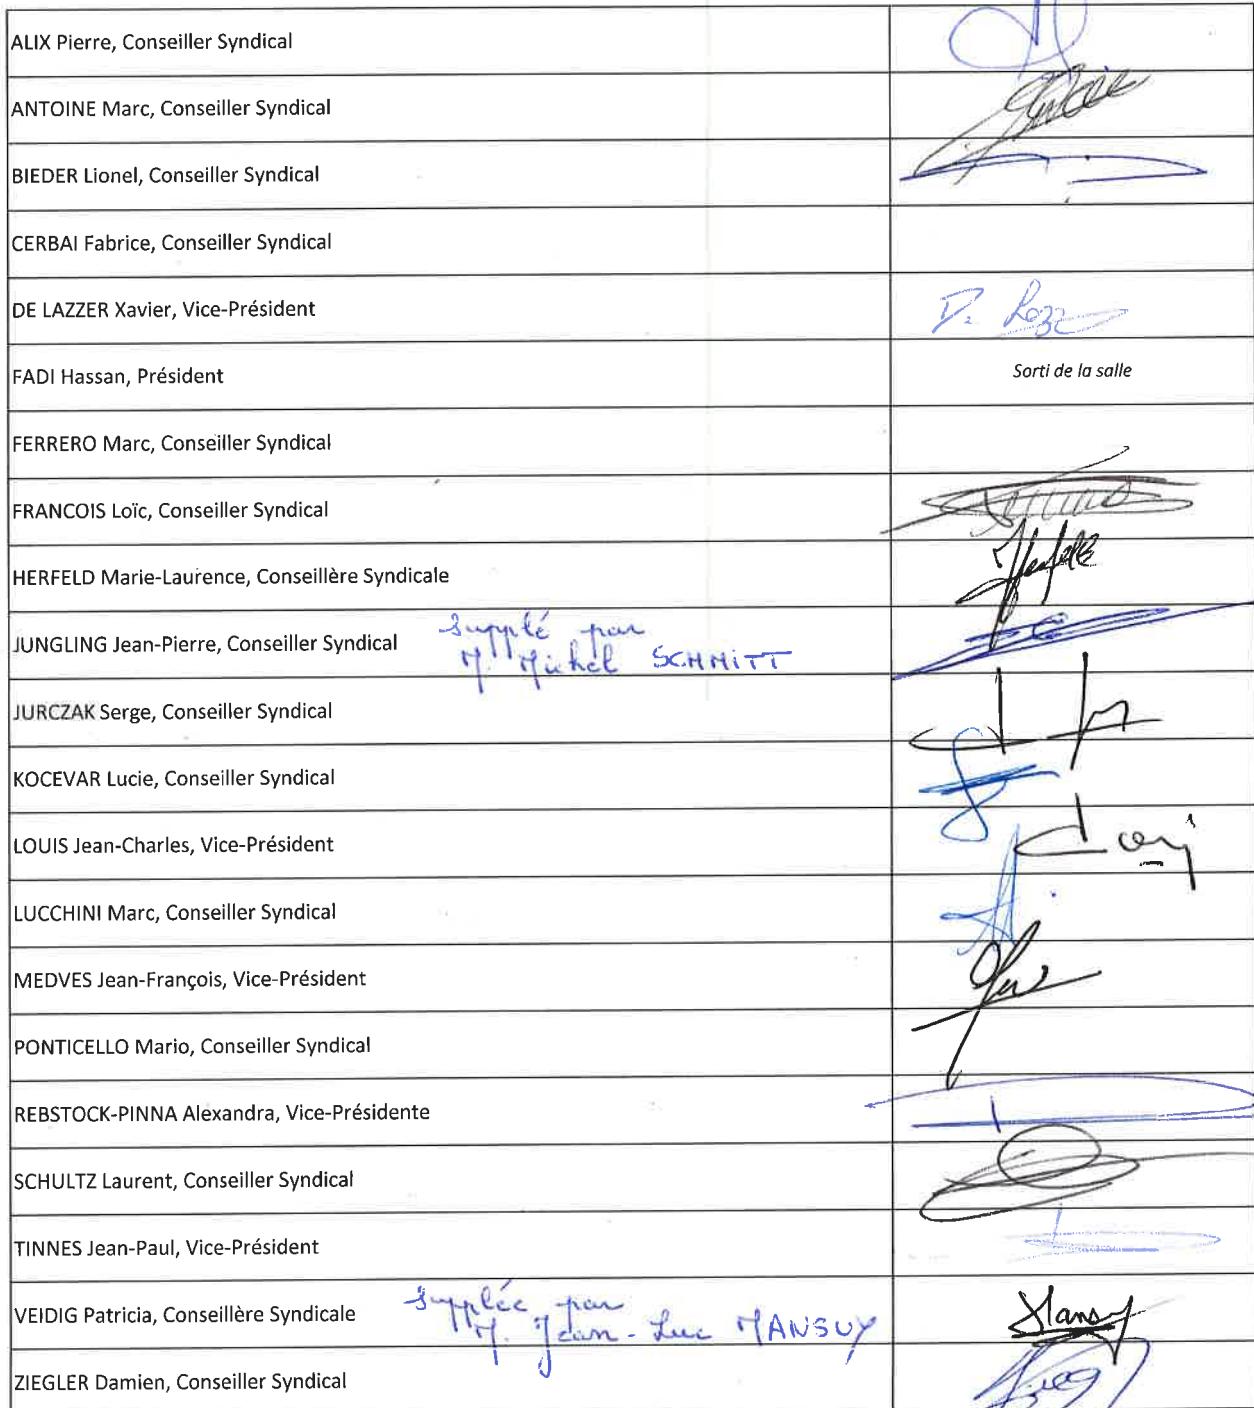 ALIX Pierre, Conseiller Syndical
ANTOINE Marc, Conseiller Syndical
BIEDER Lionel, Conseiller Syndical
CERBAI Fabrice, Conseiller Syndical
DE LAZZER Xavier, Vice-Président
FADI Hassan, Président Sorti de la salle
FERRERO Marc, Conseiller Syndical
FRANCOIS Loïc, Conseiller Syndical
HERFELD Marie-Laurence, Conseillère Syndicale
JUNGLING Jean-Pierre, Conseiller Syndical supplé par
M. Michel SCHMITT
JURCZAK Serge, Conseiller Syndical
KOCEVAR Lucie, Conseiller Syndical
LOUIS Jean-Charles, Vice-Président
LUCCHINI Marc, Conseiller Syndical
MEDVES Jean-François, Vice-Président
PONTICELLO Mario, Conseiller Syndical
REBSTOCK-PINNA Alexandra, Vice-Présidente
SCHULTZ Laurent, Conseiller Syndical
TINNES Jean-Paul, Vice-Président
VEIDIG Patricia, Conseillère Syndicale supplée par
M. Jean-Luc MANSUY Mansuy
ZIEGLER Damien, Conseiller Syndical